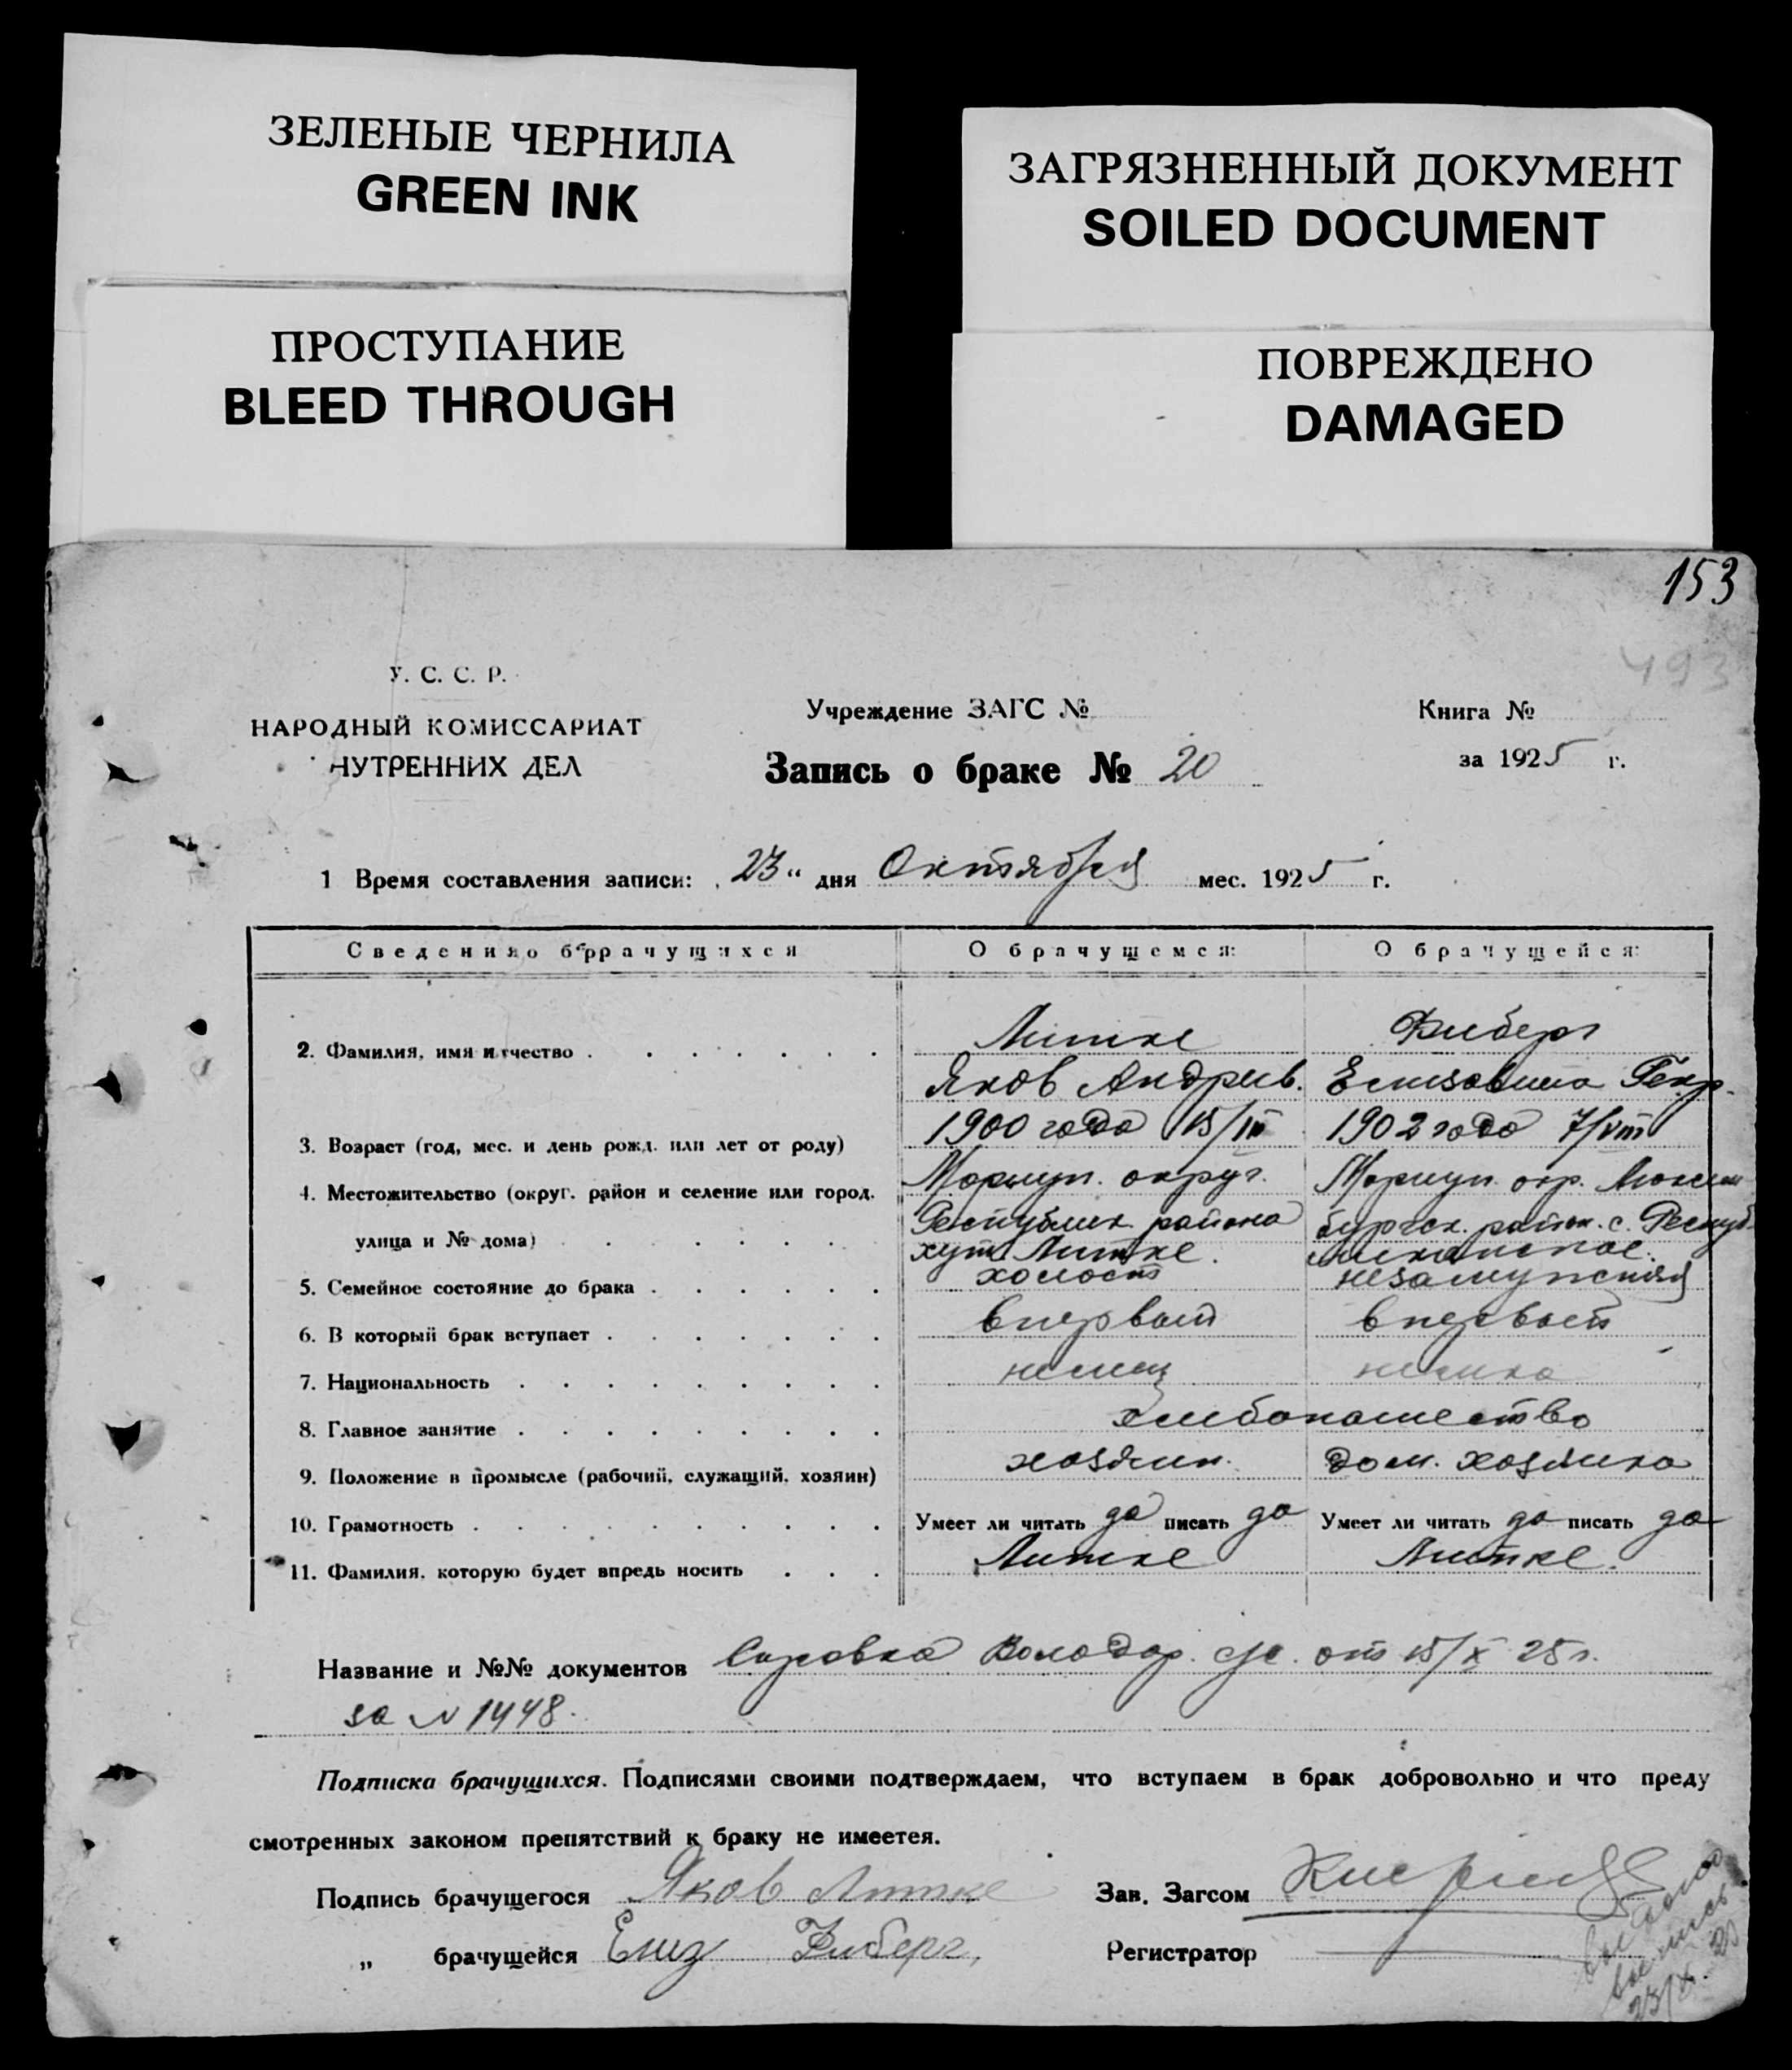 ЗЕЛЕНЫЕ ЧЕРНИЛА
GREEN INK
ПРОСТУПАНИЕ
BLEED THROUGH
ЗАГРЯЗНЕННЫЙ ДОКУМЕНТ
SOILED DOCUMENT
ПОВРЕЖДЕНО
DAMAGED
153
493
У. С. С. Р.
НАРОДНЫЙ КОМИССАРИАТ
НУТРЕННИХ ДЕЛ
Учреждение ЗАГС №
Запись о браке № 20
Книга №
за 1925 г.
1 Время составления записи: „23“ дня Октября мес. 1925 г.
Сведения о брачущихся
О брачущемся:
О брачущейся:
2. Фамилия, имя и отчество
Литке
Яков Андреев.
Фиберг
Елизавета Генр.
3. Возраст (год, мес. и день рожд. или лет от роду)
1900 года 15/III
1902 года 7/VIII
4. Местожительство (округ. район и селение или город,
улица и № дома)
Мариуп. округ.
Республик. района
хут. Литке.
Мариуп. окр. Люксем
бургск. район. с. Респуб-
ликанское.
5. Семейное состояние до брака
холост
незамужняя
6. В который брак вступает
в первый
в первый
7. Национальность
немец
немка
8. Главное занятие
хлебопашество
9. Положение в промысле (рабочий, служащий, хозяин)
хозяин.
дом. хозяйка
10. Грамотность
Умеет ли читать да писать да
Умеет ли читать да писать да
11. Фамилия, которую будет впредь носить
Литке
Литке.
Название и №№ документов Справка Володар. с/с. от 15/X 25 г.
за № 1448.
Подписка брачущихся. Подписями своими подтверждаем, что вступаем в брак добровольно и что преду
смотренных законом препятствий к браку не имеетея.
Подпись брачущегося Яков Литке
Зав. Загсом
„ брачущейся Елиз Фиберг.
Регистратор
выдана
выпись
23/X. 25